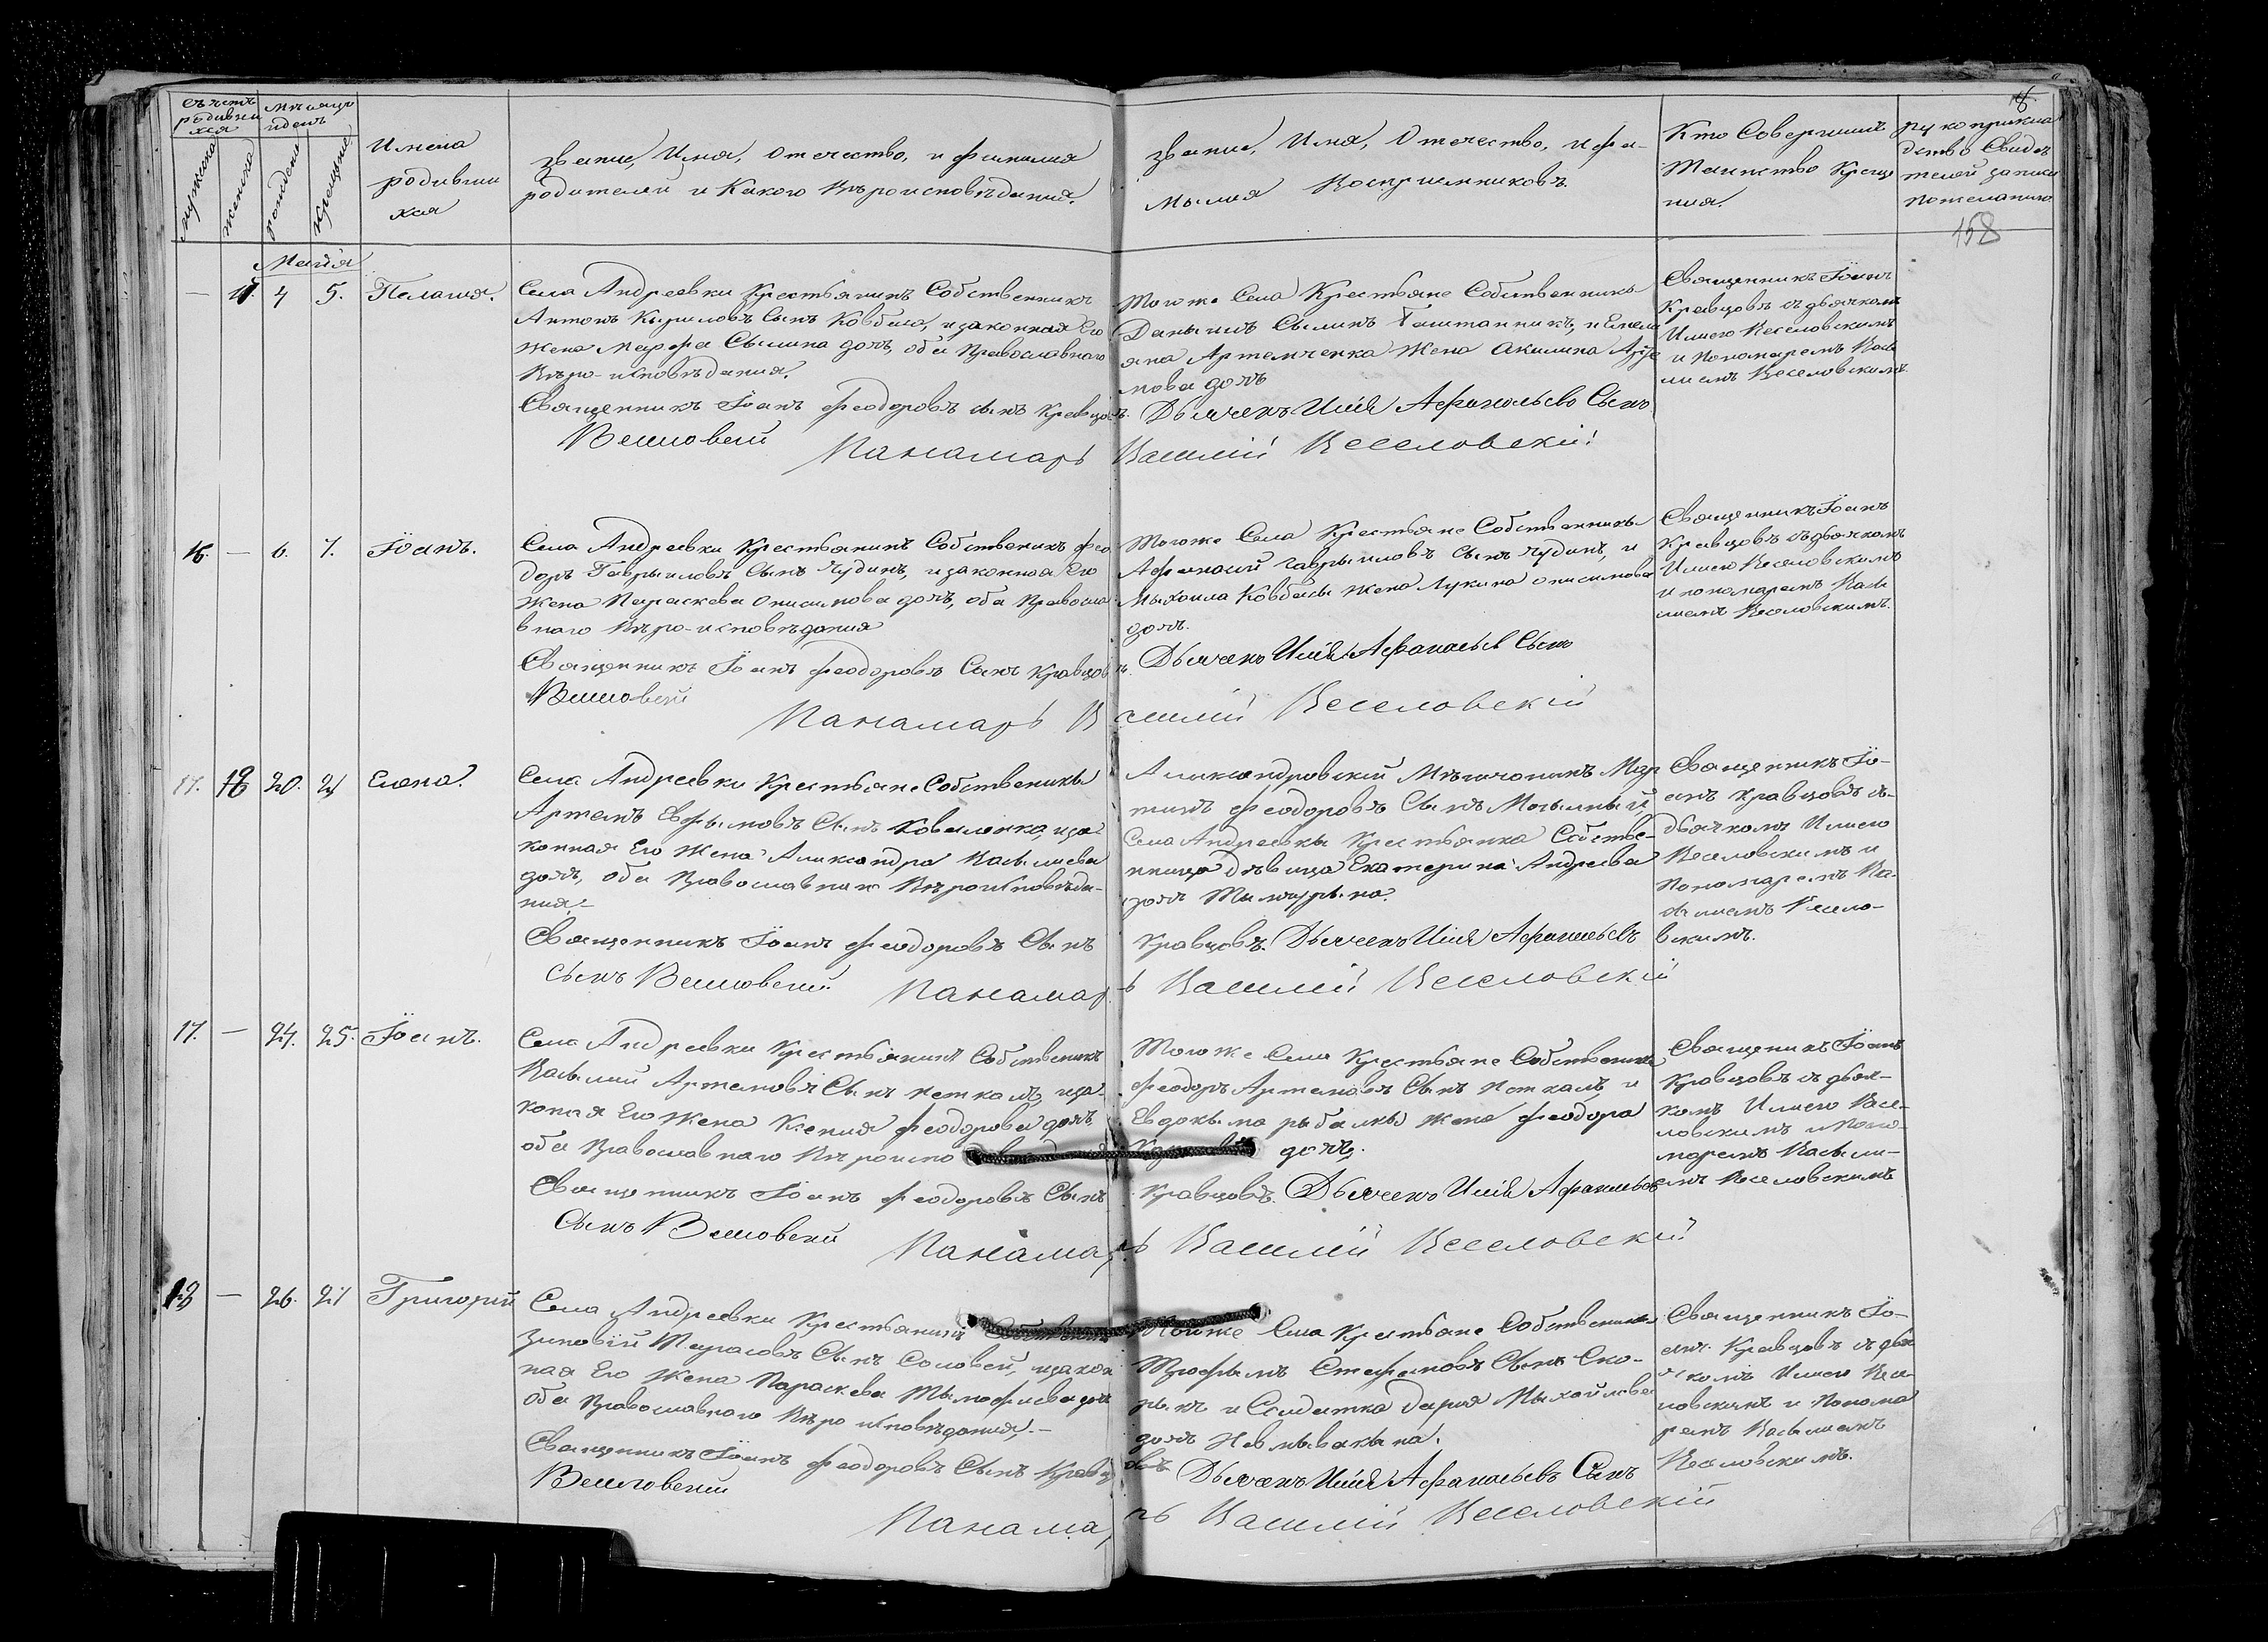 Счетъ родивши хся
мѣсяцъ и день
мужеска
женска
рожденія
крещенія
Имена
родивши
хся
Званіе, Имя, Отечество, и фамилія
родителей и Какого Вѣроисповѣданія.
Званіе, Имя, Отечество, и фа-
милія Воспріемниковъ.
Кто Совершилъ
Таинство Креще
нія.
рукоприкла
дство Свидѣ
телей записи
по желанію
158
Маія
—
4
5.
Пелагія.
Села Андреевки Крестьянинъ Собственникъ
Антонъ Кириловъ Сынъ Ковбаса, и законная Его
Жена Марфа Сылина дочь, оба Православнаго
Вѣро-исповѣданія.
Священникъ Іоанъ Феодоровъ сынъ Кравцовъ.
Веселовский
Панамарь
Тогоже Села Крестьяне Собственники
Даныилъ Сылинъ Баштанникъ, и Емель
яна Артемченка Жена Акилина
дочь
Дьячекъ Илія Афанасьевъ Сынъ
Василій Веселовскій
Священникъ Іоанъ
Кравцовъ съ дьячкомъ
Иліею Веселовскимъ
и Пономаремъ Васи
лиемъ Веселовскимъ.
16.
—
6.
7.
Іоанъ.
Села Андреевки Крестьянинъ Собственикъ Фео
доръ Гаврыиловъ Сынъ Чудинъ, и законная Его
Жена Параскева Онисимова дочь, оба Правосла
внаго Вѣро-исповѣданія
Священникъ Іоанъ Феодоровъ Сынъ Кравцовъ.
Веселовский
Панамарь
Тогоже Села Крестьяне Собственники
Афанасий Гаврыиловъ Сынъ Чудинъ, и
Мыхаила Ковбасы Жена Лукина Онисимова
дочь.
Дьячекъ Илія Афанасьев Сынъ
Василій Веселовскій
Священникъ Іоанъ
Кравцовъ съ дьячкомъ
Иліею Веселовскимъ
и пономаремъ Васи
лиемъ Веселовскимъ.
17.
20.
21
Елена.
Села Андреевки Крестьяне Собственики
Артемъ Ефымовъ Сынъ Коваленко, и за-
конная Его Жена Александра Васылиева
дочь, оба Православнаго Вѣроисповѣда-
нія.
Священникъ Іоанъ Феодоровъ Сынъ
Сынъ Веселовский.
Панамарь
Александровский Мѣщанинъ Мар
тинъ Феодоровъ Сынъ
Села Андреевкы Крестьянка Собстве-
нница Дѣвица Екатерина Андреева
дочь
Кравцовъ. Дьячекъ Илія Афанасьевъ
Василій Веселовскій
Священникъ Іо-
анъ Кравцовъ съ
дьячкомъ Иліею
Веселовскимъ и
Пономаремъ Ва-
сылиемъ Весело-
вскимъ.
17.
—
24.
25.
Іоанъ.
Села Андреевки Крестьянинъ Собственикъ
Васылий Артемовъ Сынъ Чепкалъ, и за-
коная Его Жена Ксения Феодорова дочь
оба Православнаго Вѣроиспо
Священникъ Іоанъ Феодоровъ Сынъ
Сынъ Веселовский
Панамарь
Тогоже Села Крестьяне Собственики
Феодоръ Артемовъ Сынъ Чепкалъ, и
Евдокыма рыбалкы Жена Феодора
дочь.
Кравцовъ. Дьячекъ Илія Афанасьевъ
Василій Веселовскій
Священикъ Іоанъ
Кравцовъ съ дьяч-
комъ Иліею Весе-
ловскимъ и Поно-
маремъ Васыли-
емъ Веселовскимъ
18
—
26.
27
Григорій
Села Андреевки Крестьянинъ
Зиновій Тарасовъ Сынъ Соловей, и закон
ная Его Жена Параскева Тымофиева дочь
оба Православнаго Вѣро исповѣданія.-
Священникъ Іоанъ Феодоровъ Сынъ Кравц
Веселовский
Панамарь
Тоиже Села Крестьяне Собственики
Трофымъ Стефановъ Сынъ Ско-
рыкъ и Солдатка Дария Мыхайлова
дочь
овъ Дьячекъ Илія Афанасьевъ Сынъ
Василій Веселовскій
Священникъ Іо-
анъ Кравцовъ съ дья
чкомъ Иліею Весе
ловскимъ и Понома
ремъ Васылиемъ
Веселовскимъ.